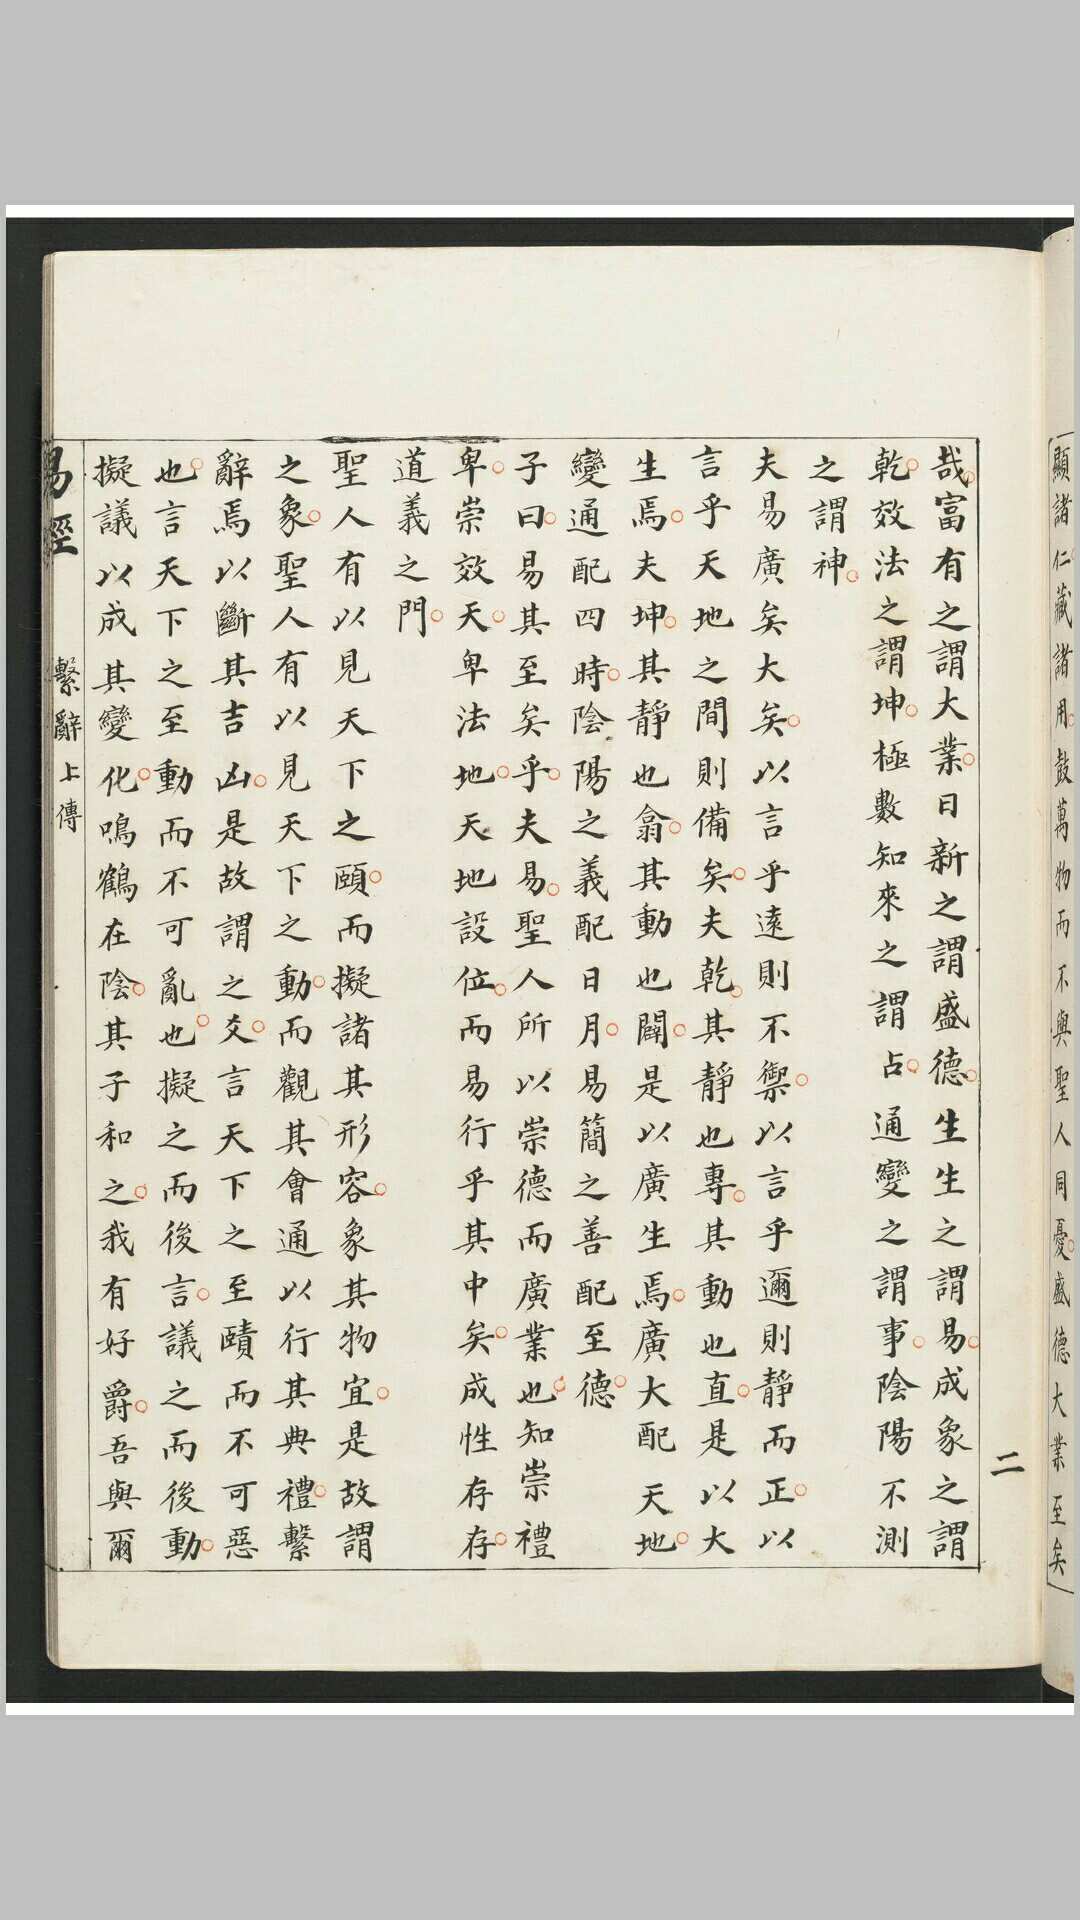 顯諸仁藏諸用鼓萬物而不與聖人同憂盛德大業至矣
二
哉富有之謂大業日新之謂盛德生生之謂易成象之謂
乾效法之謂坤極數知來之謂占通變之謂事陰陽不測
之謂神
夫易廣矣大矣以言乎遠則不禦以言乎邇則靜而正以
言乎天地之間則備矣夫乾其靜也專其動也直是以大
生焉夫坤其靜也翕其動也闢是以廣生焉廣大配天地
變通配四時陰陽之義配日月易簡之善配至德
子曰易其至矣乎夫易聖人所以崇德而廣業也知崇禮
卑崇效天卑法地天地設位而易行乎其中矣成性存存
道義之門
聖人有以見天下之頤而擬諸其形容象其物宜是故謂
之象聖人有以見天下之動而觀其會通以行其典禮繫
辭焉以斷其吉凶是故謂之爻言天下之至賾而不可惡
也言天下之至動而不可亂也擬之而後言議之而後動
擬議以成其變化鳴鶴在陰其子和之我有好爵吾與爾
易經 繫辭上傳